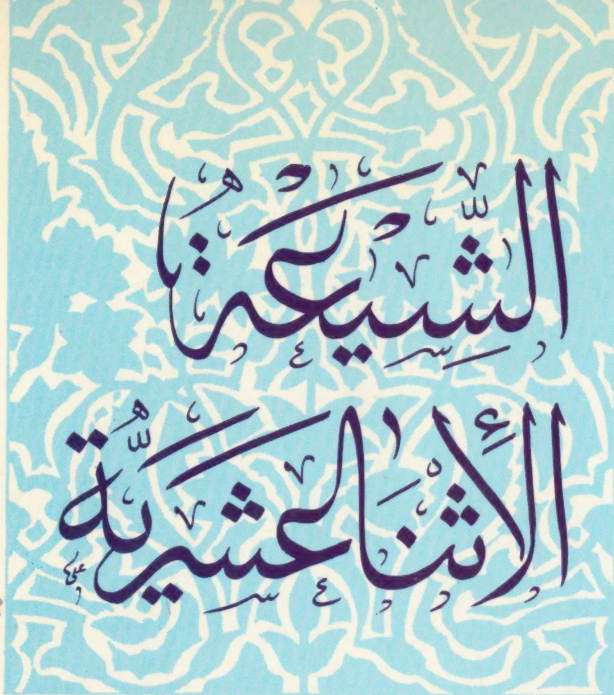 الشِّيعَةُ
الإِثْنَا عَشَرِيَّة